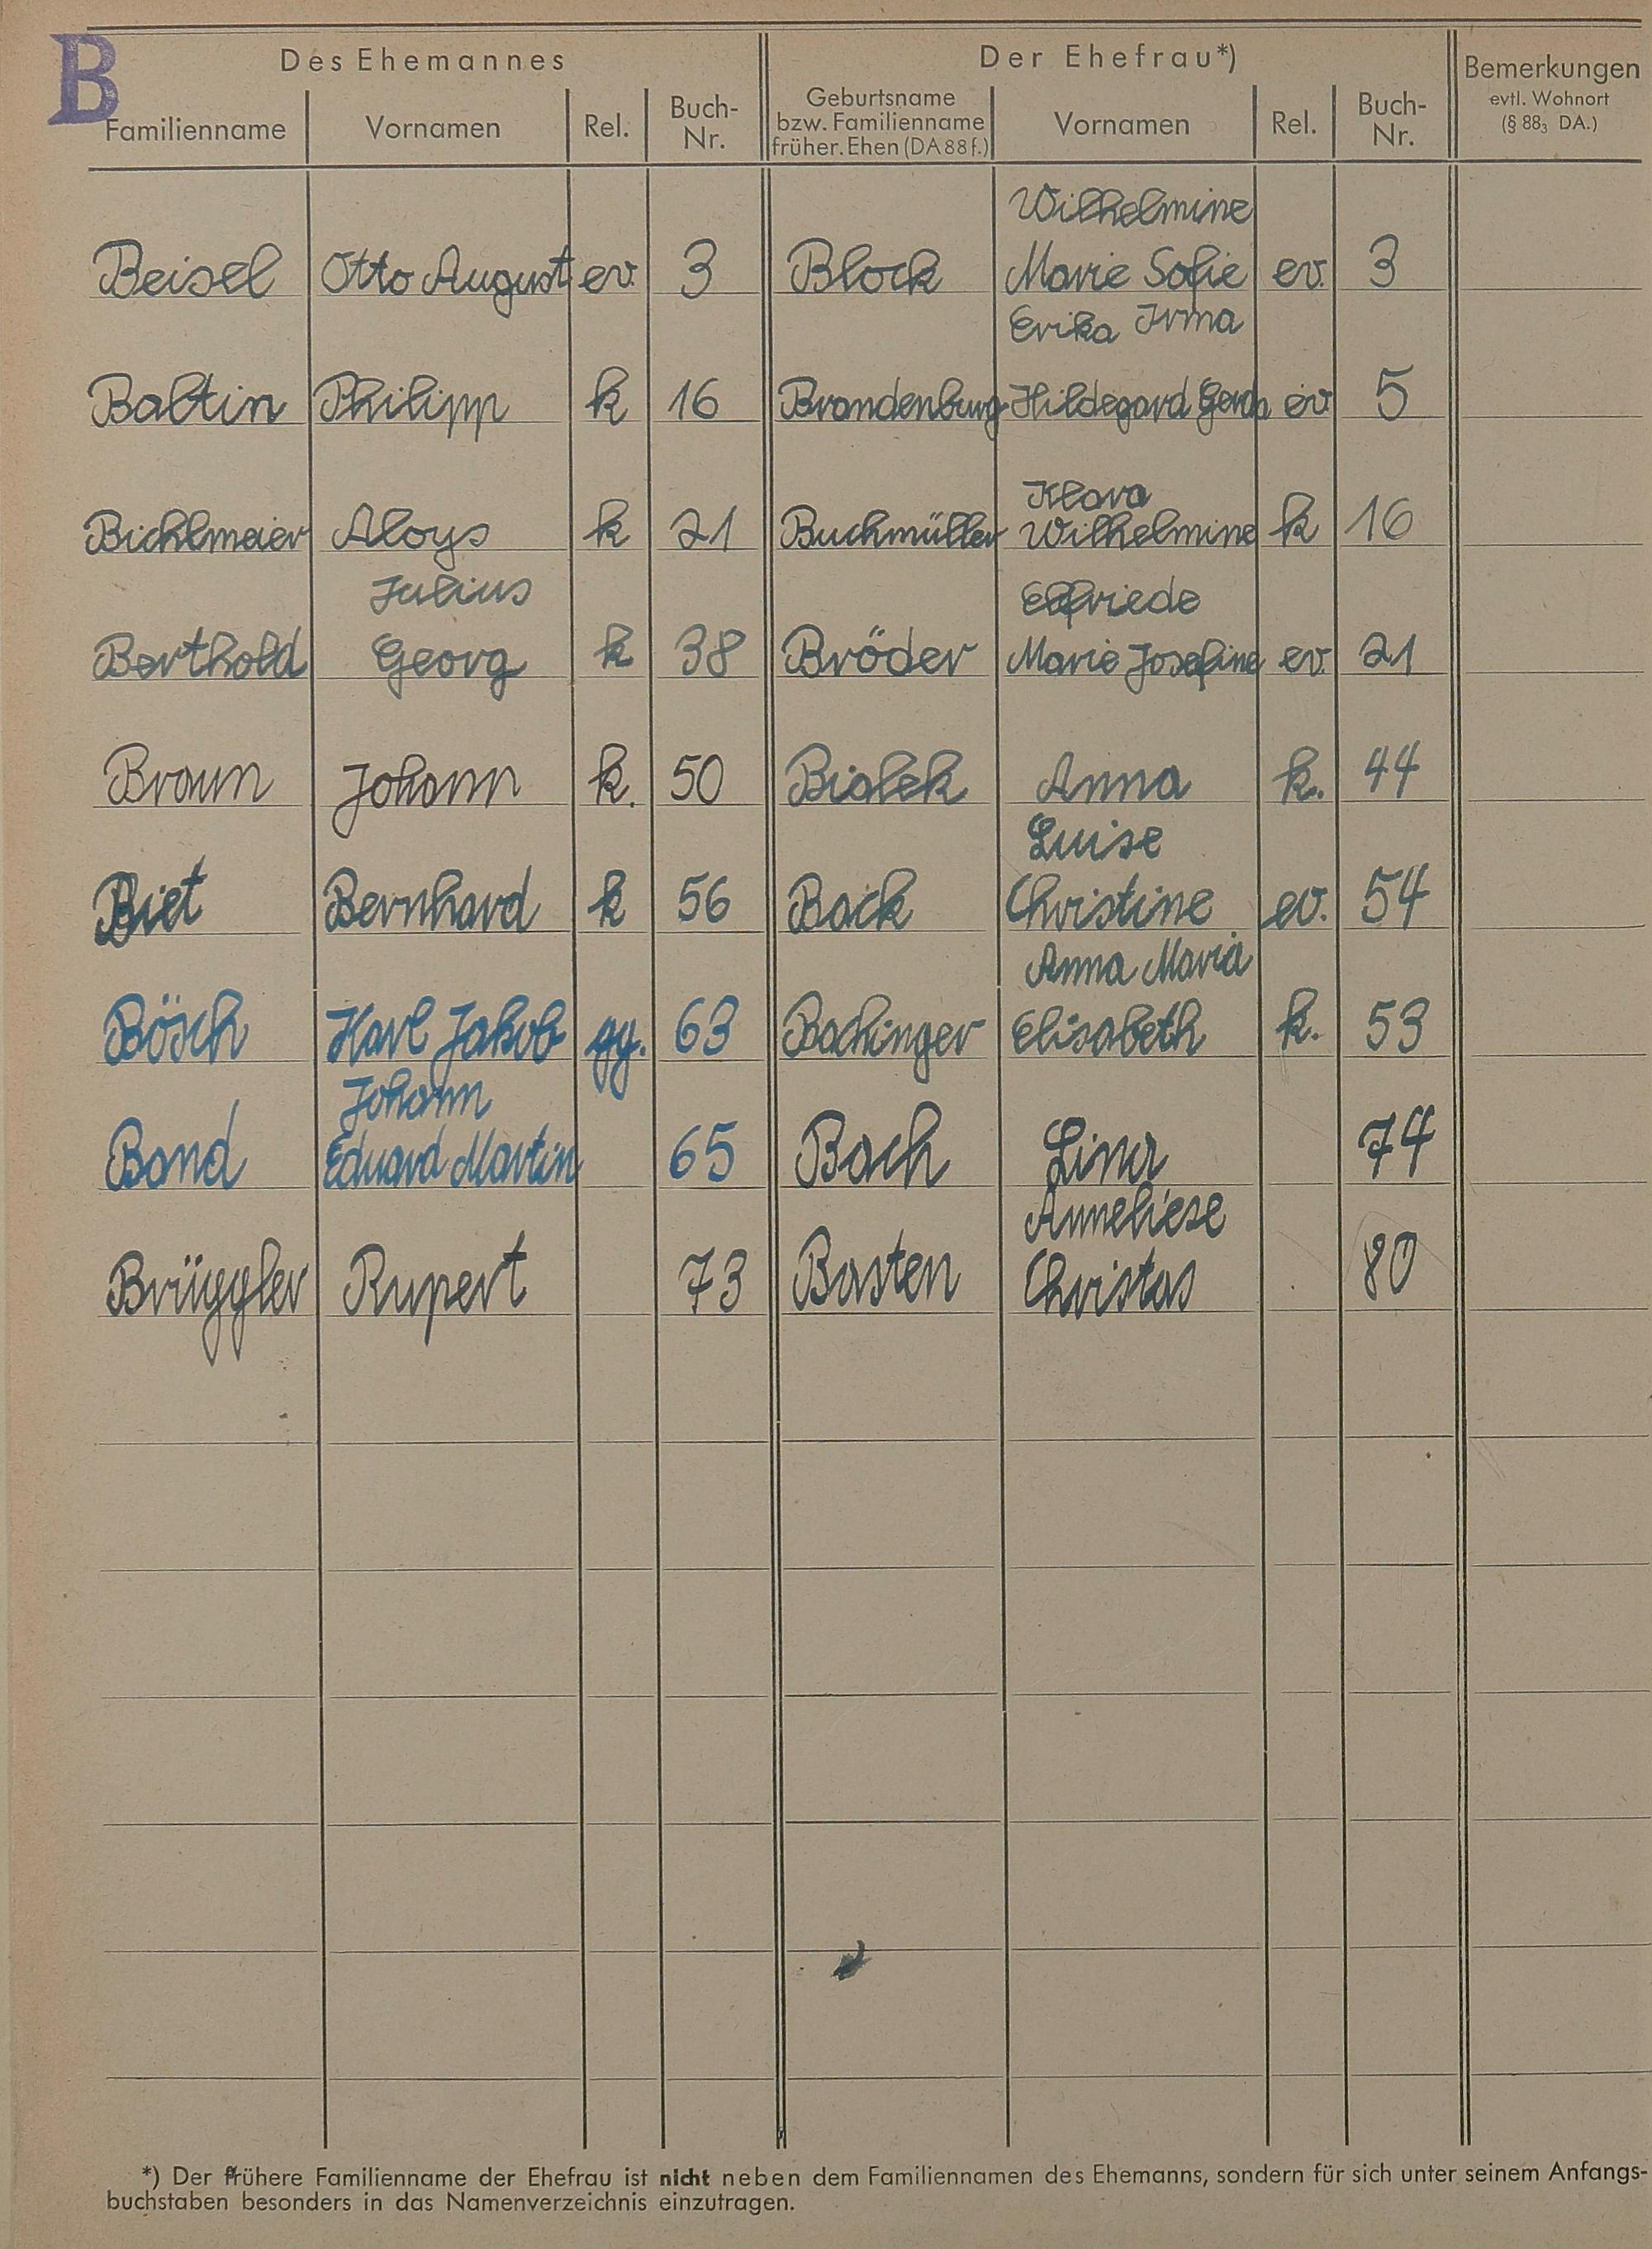 B
Des Ehemannes Der Ehefrau*) Bemerkungen
evtl. Wohnort
(§ 88₃ DA.)
Familienname Vornamen Rel. Buch-Nr. Geburtsname bzw. Familienname früher. Ehen (DA 88 f.) Vornamen Rel. Buch-Nr.
Wilhelmine
Beisel Otto August ev. 3 Block Marie Sofie ev. 3
Erika Irma
Baltin Philipp k 16 Brandenburg Hildegard Gerda ev. 5
Klara
Bichlmaier Aloys k 21 Buchmüller Wilhelmine k 16
Julius Elfriede
Berthold Georg k 38 Bröder Marie Josefine ev. 21
Braun Johann k. 50 Bialek Anna k. 44
Luise
Biet Bernhard k 56 Back Christine ev. 54
Anna Maria
Bösch Karl Jakob gg. 63 Bachinger Elisabeth k. 53
Johann
Band Eduard Martin 65 Bach Lina 74
Anneliese
Brüggler Rupert 73 Basten Christas 80
*) Der frühere Familienname der Ehefrau ist nicht neben dem Familiennamen des Ehemanns, sondern für sich unter seinem Anfangs-
buchstaben besonders in das Namenverzeichnis einzutragen.